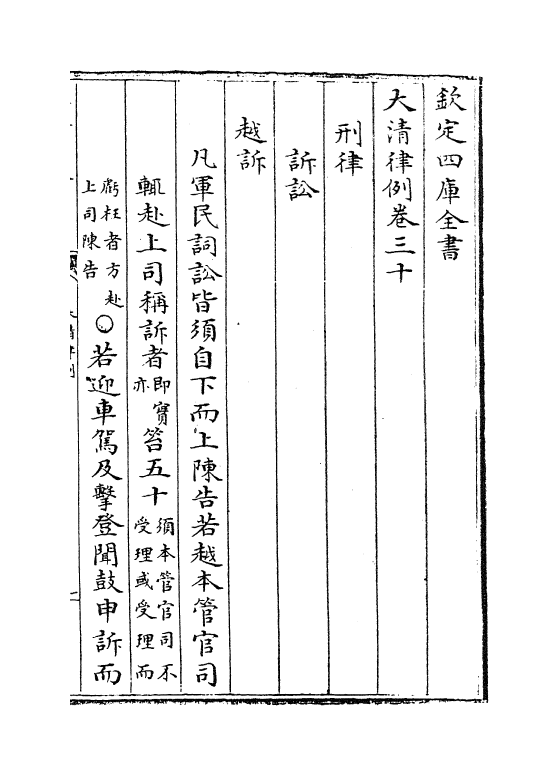 欽定四庫全書
大清律例卷三十
刑律
訴訟
越訴
凡軍民詞訟皆須自下而上陳告若越本管官司
輒赴上司稱訴者即實亦笞五十須本管官司不受理或受理而
虧枉者方赴上司陳告○若迎車駕及擊登聞鼓申訴而